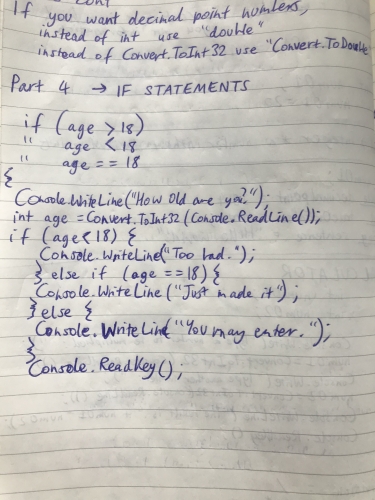 If you want decimal point numbers,
instead of int use "double"
instead of Convert.ToInt32 use "Convert.ToDouble
Part 4 → IF STATEMENTS
if (age > 18)
" age < 18
" age == 18
{
Console.WriteLine("How Old are you?");
int age = Convert.ToInt32 (Console.ReadLine());
if (age < 18) {
Console.WriteLine("Too bad.");
} else if (age == 18) {
Console.WriteLine("Just made it");
} else {
Console.WriteLine("You may enter.");
}
}
Console.ReadKey();